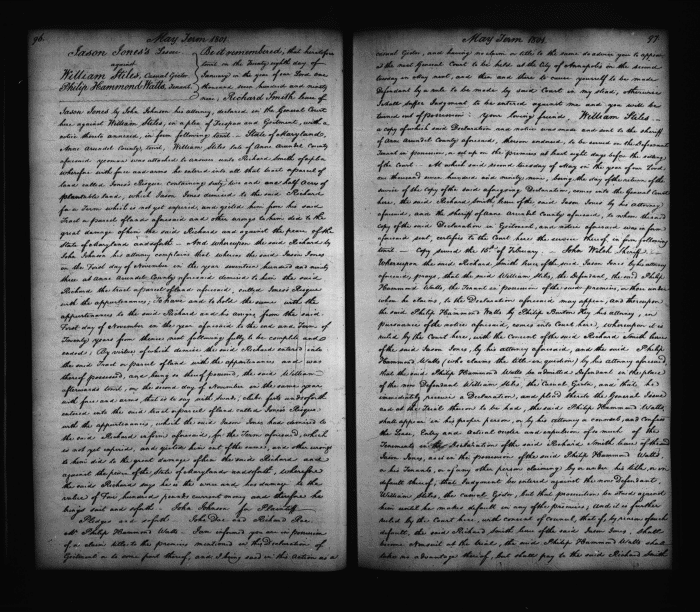 96.
May Term 1801.
Jason Jones's Lessee
against
William Stiles, Casual Ejector
& Philip Hammond Watts, Tenant.
Be it remembered, that heretofore
to wit on the Twenty eighth day of
January in the year of our Lord one
thousand seven hundred and ninety
nine, Richard Smith lessee of
Jason Jones by John Johnson his attorney, declared in the General Court
here against William Stiles, in a plea of Trespass and Ejectment, with a
notice thereto annexed, in form following to wit. State of Maryland,
Anne Arundel County, to wit, William Stiles late of Anne Arundel County
aforesaid yeoman was attached to answer unto Richard Smith of a plea
wherefore with force and arms he entered into all that tract or parcel of
land called Jones's Rogue containing sixty two and one half Acres of
land, which Jason Jones demised to the said Richard
for a Term which is not yet expired, and ejected him from his said
Tract or parcel of land aforesaid and other wrongs to him did to the
great damage of him the said Richard and against the peace of the
State of Maryland and so forth — And whereupon the said Richard by
John Johnson his attorney complains that whereas the said Jason Jones
on the First day of November in the year seventeen hundred and ninety
three at Anne Arundel County aforesaid demised to him the said
Richard the tract or parcel of land aforesaid, called Jones's Rogue
with the appurtenances, To have and to hold the same with the
appurtenances to the said Richard and his assigns from the said
First day of November in the year aforesaid to the end and Term of
Twenty years from thence next following fully to be complete and
ended; By virtue of which demise the said Richard entered into
the said Tract or parcel of land with the appurtenances and was
thereof possessed, and being so thereof possessed, the said William
afterwards to wit, on the second day of November in the same year
with force and arms, that is to say with swords, clubs, fists and so forth
entered into the said tract or parcel of land called Jones's Rogue
with the appurtenances, which the said Jason Jones had demised to
the said Richard in form aforesaid, for the Term aforesaid, which
is not yet expired, and ejected him out of the same, and other wrongs
to him did to the great damage of him the said Richard and
against the peace of the State of Maryland and so forth, wherefore
the said Richard says he is the worse and has damage to the
value of Two hundred pounds current money and therefore he
brings suit and so forth — John Johnson for Plaintiff
Pledges and so forth — John Doe and Richard Roe
Mr Philip Hammond Watts. I am informed you are in possession
of or claim title to the premises mentioned in this Declaration of
Ejectment or to some part thereof, and I being sued in this Action as a
May Term 1801.
97
casual Ejector, and having no claim or title to the same do advise you to appear
at the next General Court to be held at the City of Annapolis on the second
tuesday in May next, and then and there to cause yourself to be made
Defendant by a rule to be made by said Court in my stead, otherwise
I shall suffer Judgment to be entered against me and you will be
turned out of possession. your loving friend, William Stiles —
a Copy of which said Declaration and notice was made and sent to the sheriff
of Ann Arundel County aforesaid, thereon endorsed, to be served on the Defendant
Tenant in possession, or set up on the premises at least eight days before the setting
of the Court. At which said second tuesday of May in the year of our Lord
one thousand seven hundred and ninety nine, being the day of the return of the
service of the Copy of the said aforegoing Declaration, comes into the General Court
here, the said Richard Smith lessee of the said Jason Jones by his attorney
aforesaid, and the sheriff of Anne Arundel County aforesaid, to whom the said
Copy of the said Declaration in Ejectment, and notice aforesaid was in form
aforesaid sent, certifies to the Court here the service thereof, in form following
to wit — Copy served the 15th of February. John Welsh Sheriff —
Whereupon the said Richard Smith lessee of the said Jason Jones by his attorney
aforesaid, prays, that the said William Stiles, the Defendant, the said Philip
Hammond Watts, the Tenant in possession of the said premises, or them under
whom he claims, to the Declaration aforesaid may appear, and thereupon
the said Philip Hammond Watts by Philip Barton Key his attorney, in
pursuance of the notice aforesaid, comes into Court here, whereupon it is
ruled by the Court here, with the Consent of the said Richard Smith lessee
of the said Jason Jones, by his attorney aforesaid, and the said Philip
Hammond Watts, (who claims the title in question) by his attorney aforesaid,
that the said Philip Hammond Watts be admitted Defendant in the place
of the now Defendant William Stiles, the Casual Ejector, and that, he
immediately receives a Declaration, and plead thereto the General Issue
and at the Trial thereon to be had, the said Philip Hammond Watts,
shall appear in his proper person, or by his attorney or council, and Confess
the Lease, Entry and actual Ouster and expulsion of so much of the
Tenements in the Declaration of the said Richard Smith lessee of the said
Jason Jones, as is in the possession of the said Philip Hammond Watts,
or his Tenants, or of any other person claiming by or under his title, or in
default thereof, that Judgment be entered against the now Defendant
William Stiles, the Casual Ejector, but that prosecution be stayed against
him until he makes default in any of the premises; And it is further
ruled by the Court here, with consent of Counsel, that if, by reason of such
default, the said Richard Smith lessee of the said Jason Jones, shall
become Nonsuit at the trial, the said Philip Hammond Watts shall
take no advantage thereof, but shall pay to the said Richard Smith